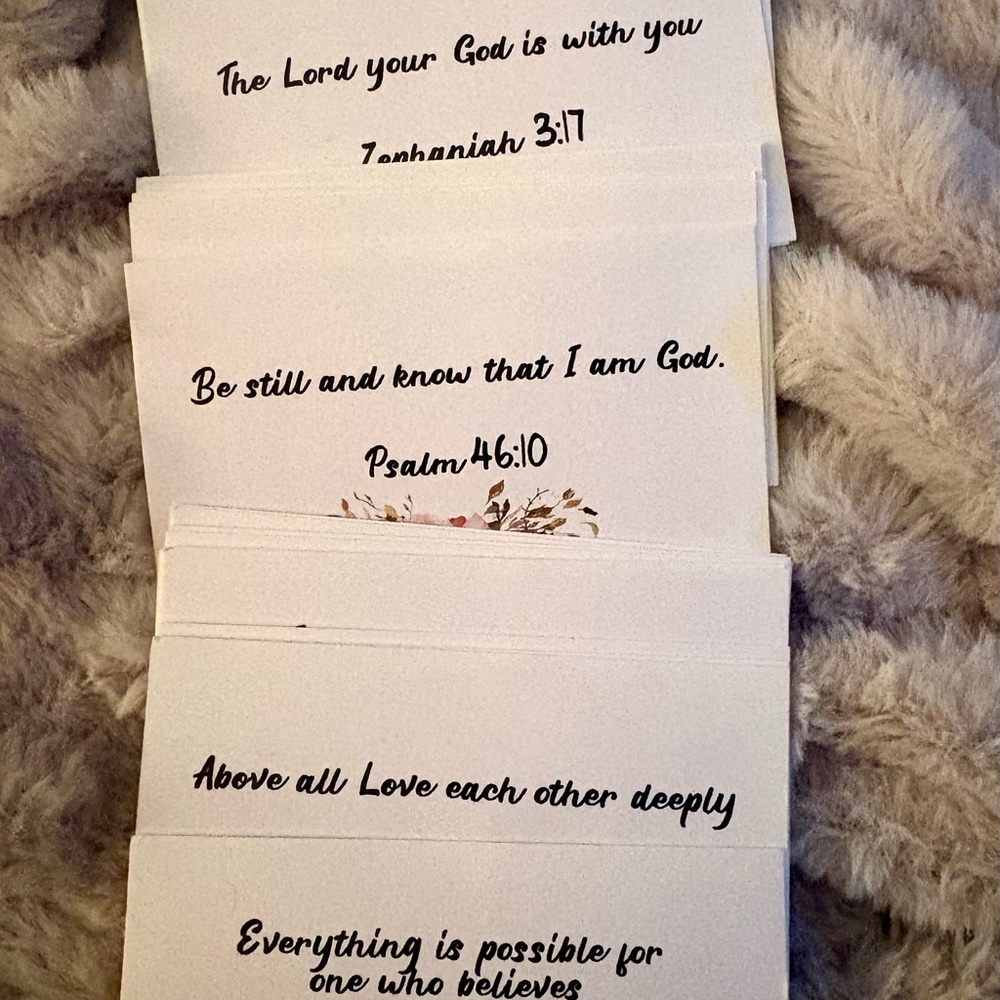 The Lord your God is with you
Zephaniah 3:17
Be still and know that I am God.
Psalm 46:10
Above all Love each other deeply
Everything is possible for
one who believes